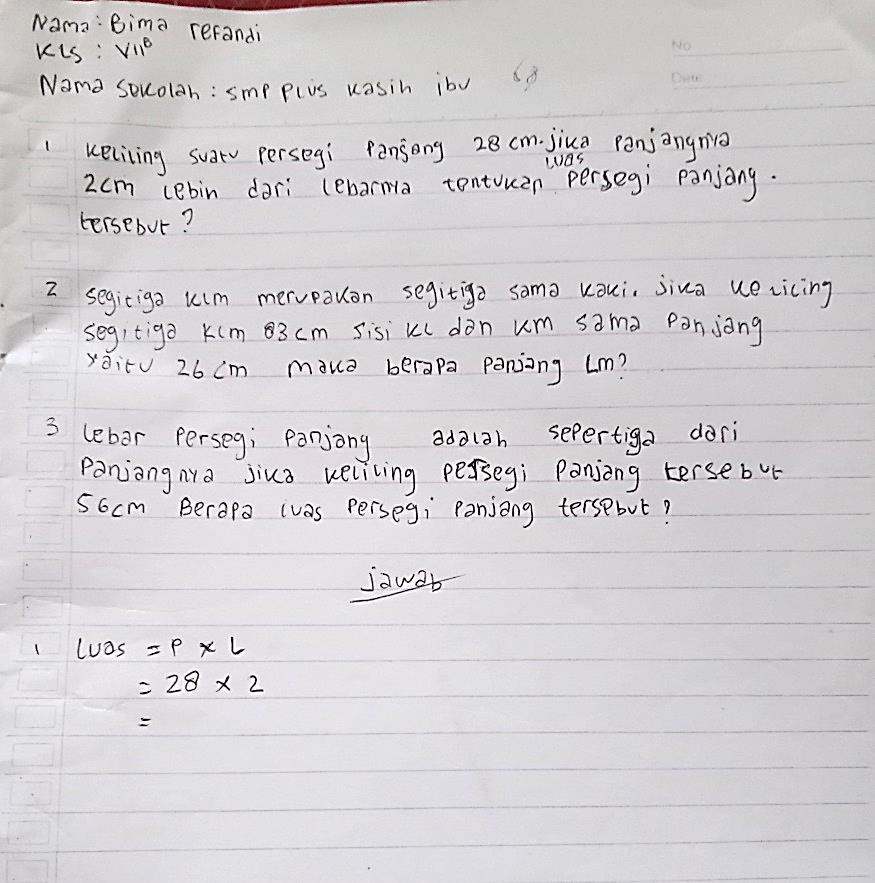 Nama : Bima refandi
KLS : VII B
No
Date
Nama sekolah : smp plus kasih ibu 68
1 keliling suatu persegi panjang 28 cm. jika panjangnya
luas
2cm lebih dari lebarnya tentukan persegi panjang.
tersebut ?
2 segitiga klm merupakan segitiga sama kaki. jika keliling
segitiga klm 83 cm sisi kl dan km sama panjang
yaitu 26 cm maka berapa panjang Lm?
3 lebar persegi panjang adalah sepertiga dari
panjangnya jika keliling persegi panjang tersebut
56cm Berapa luas persegi panjang tersebut ?
jawab
1 luas = P x L
= 28 x 2
=